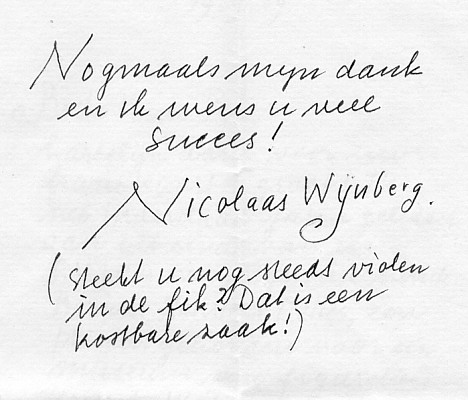 Nogmaals mijn dank
en ik wens u veel
succes!
Nicolaas Wijnberg.
(steekt u nog steeds violen
in de fik? Dat is een
kostbare zaak!)